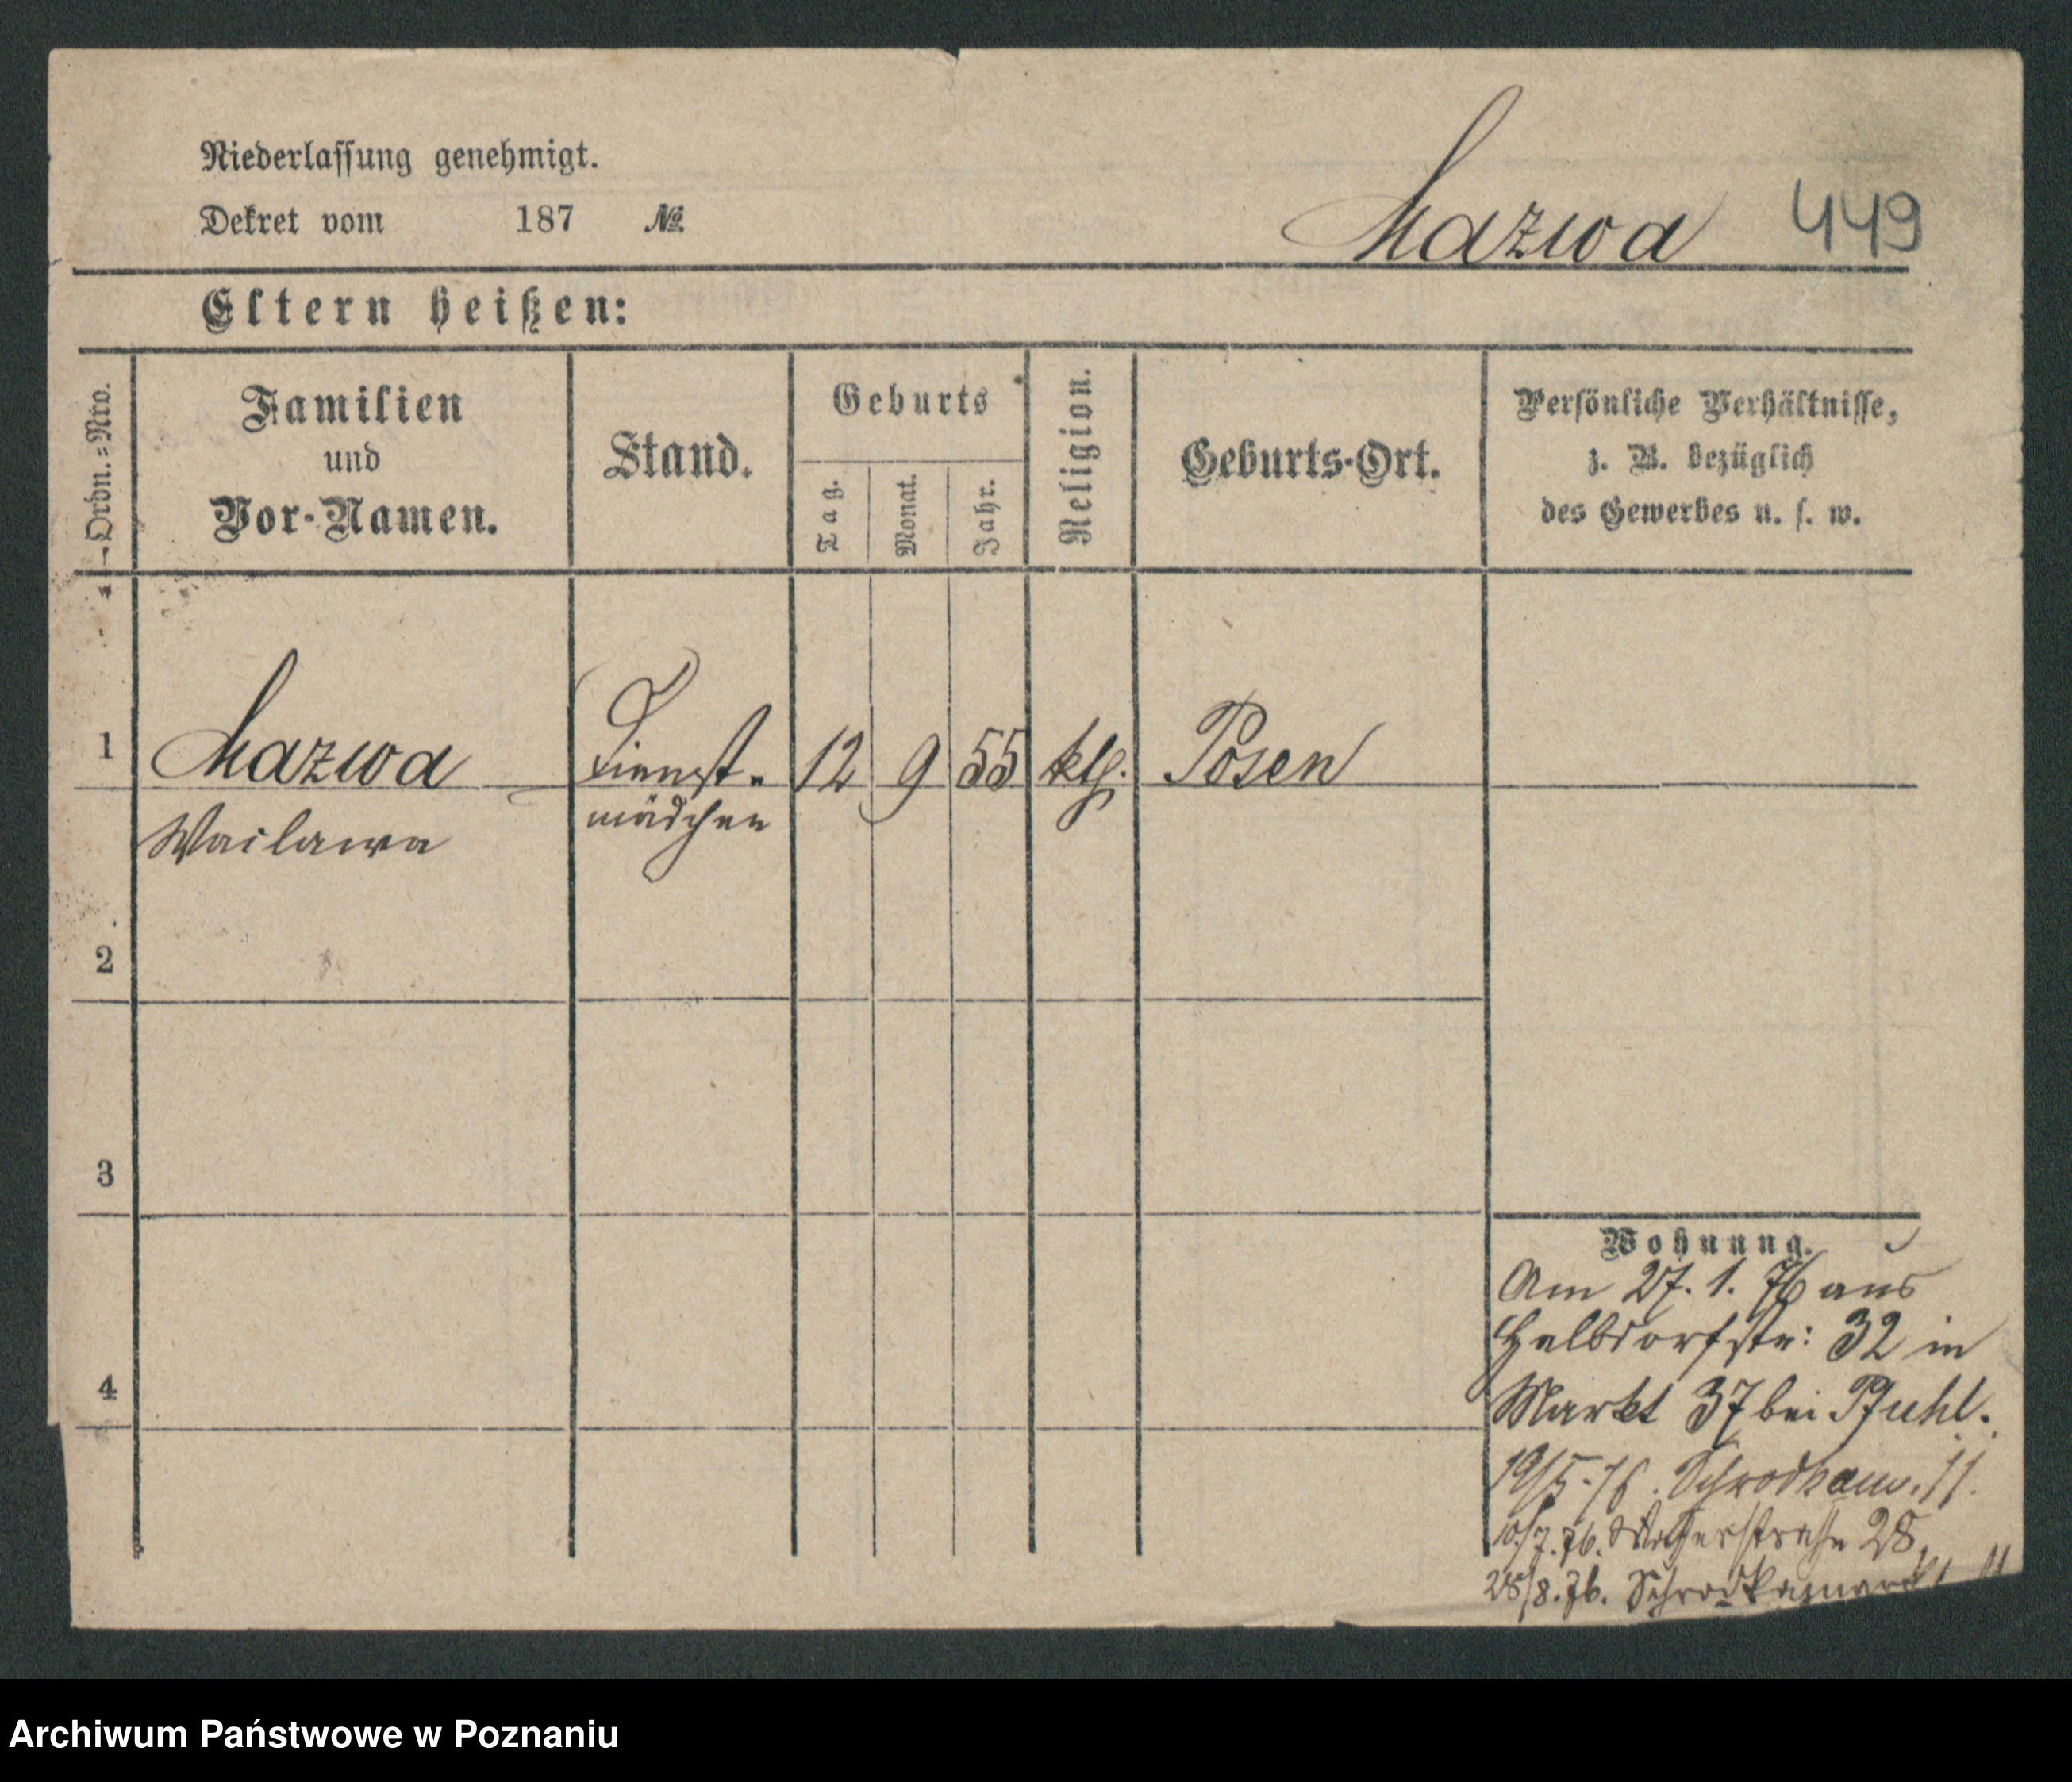 Niederlassung genehmigt.
Dekret vom 187 №
Mazwa 449
Eltern heißen:
Ordn.-Nro.
Familien
und
Vor-Namen.
Stand.
Geburts
Tag.
Monat.
Jahr.
Religion.
Geburts-Ort.
Persönliche Verhältnisse,
z. B. bezüglich
des Gewerbes u. s. w.
1 Mazwa Dienst- 12 9 55 ktl. Posen
Waclawa mädchen
2
3
4
Wohnung.
Am 27. 1. 76 aus
Halbdorfstr: 32 in
Markt 37 bei Pfuhl.
19/5. 76. Schrodkam. 11.
10/7. 76. 28,
28/8. 76. Schrodkamarkt 11
Archiwum Państwowe w Poznaniu